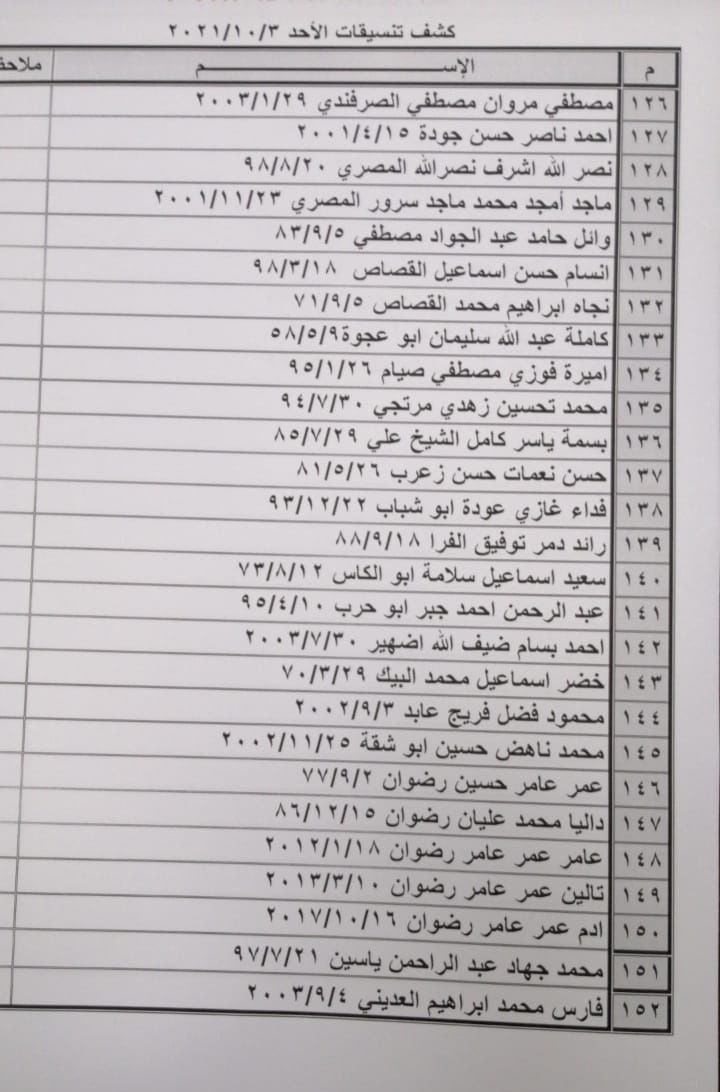 كشف تنسيقات الأحد ٢٠٢١/١٠/٣
م الإســــــم ملاحظ
١٢٦ مصطفي مروان مصطفي الصرفندي ٢٠٠٣/١/٢٩
١٢٧ احمد ناصر حسن جودة ٢٠٠١/٤/١٥
١٢٨ نصر الله اشرف نصرالله المصري ٩٨/٨/٢٠
١٢٩ ماجد أمجد محمد ماجد سرور المصري ٢٠٠١/١١/٢٣
١٣٠ وائل حامد عبد الجواد مصطفي ٨٣/٩/٥
١٣١ انسام حسن اسماعيل القصاص ٩٨/٣/١٨
١٣٢ نجاه ابراهيم محمد القصاص ٧١/٩/٥
١٣٣ كاملة عبد الله سليمان ابو عجوة٥٨/٥/٩
١٣٤ اميرة فوزي مصطفي صيام ٩٥/١/٢٦
١٣٥ محمد تحسين زهدي مرتجي ٩٤/٧/٣٠
١٣٦ بسمة ياسر كامل الشيخ علي ٨٥/٧/٢٩
١٣٧ حسن نعمات حسن زعرب ٨١/٥/٢٦
١٣٨ فداء غازي عودة ابو شباب ٩٣/١٢/٢٢
١٣٩ رائد دمر توفيق الفرا ٨٨/٩/١٨
١٤٠ سعيد اسماعيل سلامة ابو الكاس ٧٣/٨/١٢
١٤١ عبد الرحمن احمد جبر ابو حرب ٩٥/٤/١٠
١٤٢ احمد بسام ضيف الله اضهير ٢٠٠٣/٧/٣٠
١٤٣ خضر اسماعيل محمد البيك ٧٠/٣/٢٩
١٤٤ محمود فضل فريج عابد ٢٠٠٢/٩/٣
١٤٥ محمد ناهض حسين ابو شقة ٢٠٠٢/١١/٢٥
١٤٦ عمر عامر حسين رضوان ٧٧/٩/٢
١٤٧ داليا محمد عليان رضوان ٨٦/١٢/١٥
١٤٨ عامر عمر عامر رضوان ٢٠١٢/١/١٨
١٤٩ تالين عمر عامر رضوان ٢٠١٣/٣/١٠
١٥٠ ادم عمر عامر رضوان ٢٠١٧/١٠/١٦
١٥١ محمد جهاد عبد الراحمن ياسين ٩٧/٧/٢١
١٥٢ فارس محمد ابراهيم العديني ٢٠٠٣/٩/٤